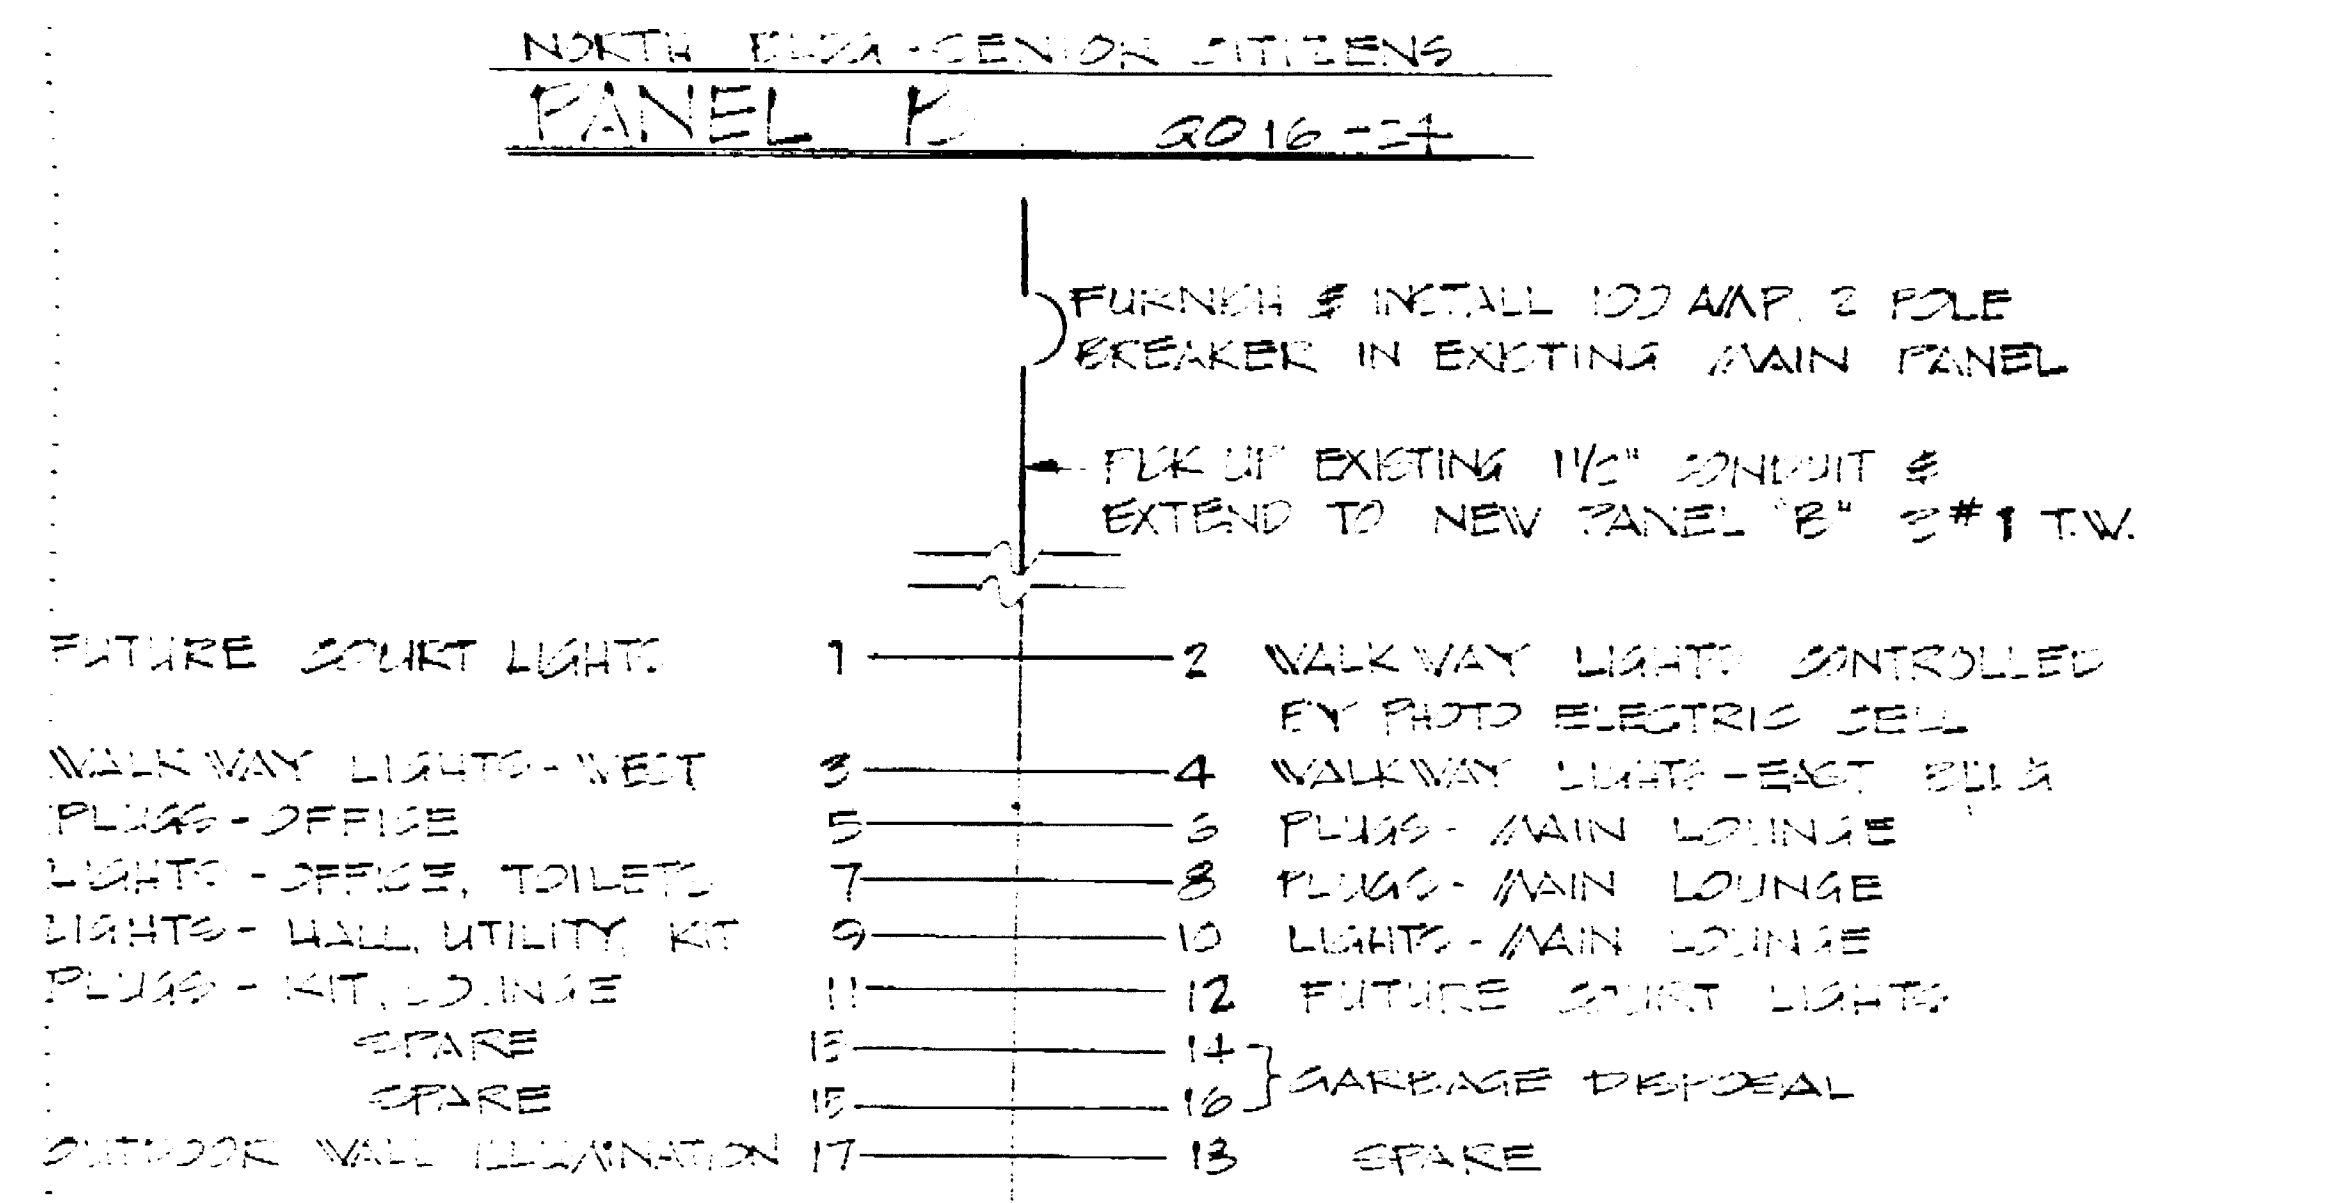 NORTH BLDG - SENIOR CITIZENS
PANEL B QO 16-24
FURNISH & INSTALL 100 AMP. 2 POLE
BREAKER IN EXISTING MAIN PANEL
PICK UP EXISTING 1 1/2" CONDUIT &
EXTEND TO NEW PANEL "B" 3 #1 T.W.
FUTURE COURT LIGHTS 1 2 WALKWAY LIGHTS CONTROLLED
BY PHOTO ELECTRIC CELL
WALKWAY LIGHTS - WEST 3 4 WALKWAY LIGHTS - EAST BLDG
PLUGS - OFFICE 5 6 PLUGS - MAIN LOUNGE
LIGHTS - OFFICE, TOILETS 7 8 PLUGS - MAIN LOUNGE
LIGHTS - HALL, UTILITY, KIT 9 10 LIGHTS - MAIN LOUNGE
PLUGS - KIT, LOUNGE 11 12 FUTURE COURT LIGHTS
SPARE 13 14
GARBAGE DISPOSAL
SPARE 15 16
OUTDOOR WALL ILLUMINATION 17 18 SPARE